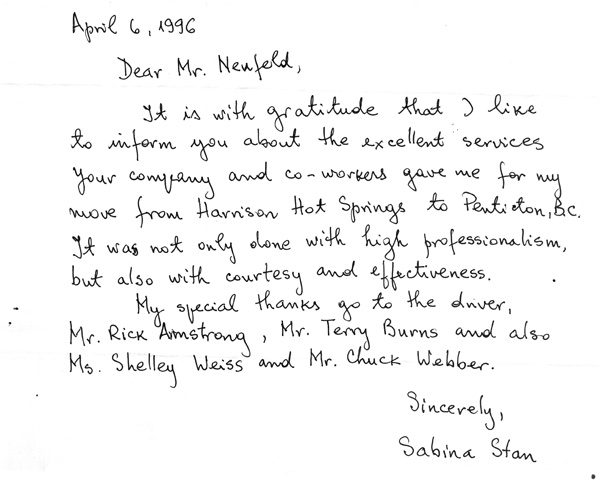 April 6, 1996
Dear Mr. Neufeld,
It is with gratitude that I like
to inform you about the excellent services
your company and co-workers gave me for my
move from Harrison Hot Springs to Penticton, B.C.
It was not only done with high professionalism,
but also with courtesy and effectiveness.
My special thanks go to the driver,
Mr. Rick Armstrong, Mr. Terry Burns and also
Ms. Shelley Weiss and Mr. Chuck Webber.
Sincerely,
Sabina Stan